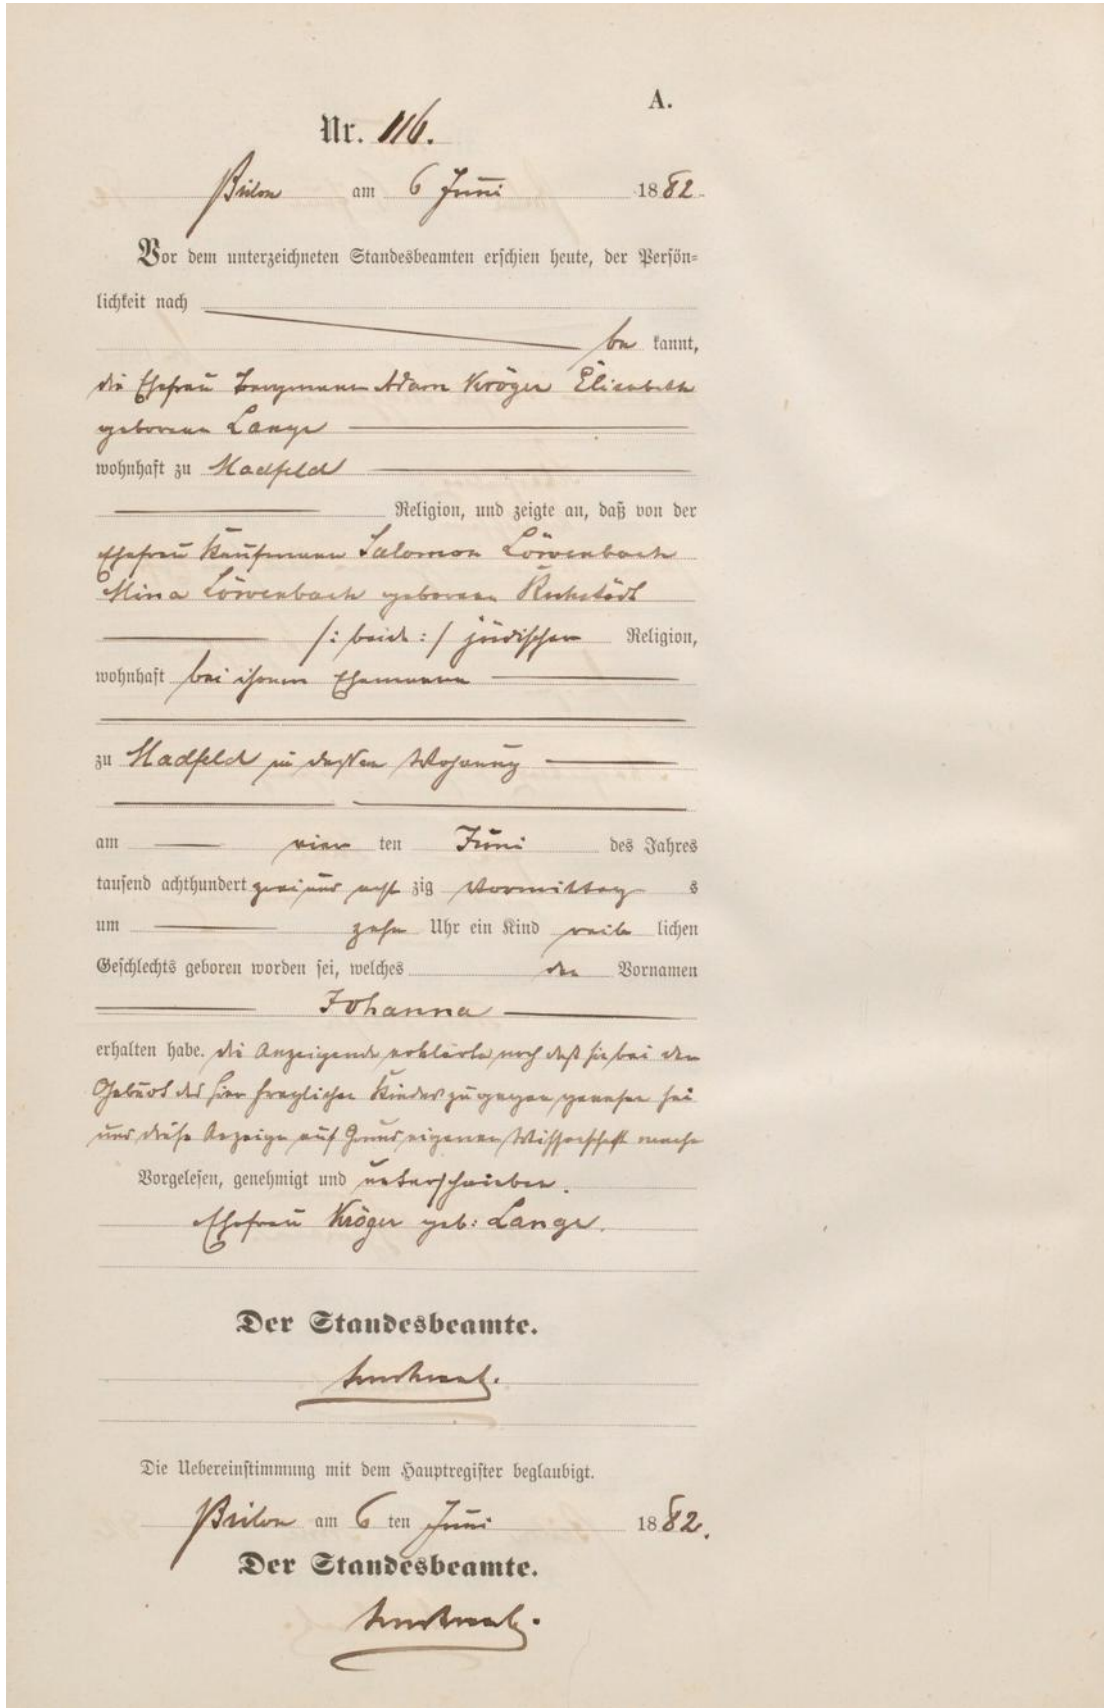 A.
Nr. 116.
Brilon am 6 Juni 1882
Vor dem unterzeichneten Standesbeamten erschien heute, der Persön=
lichkeit nach
be kannt,
die Ehefrau Bergmann Adam Kröger Elisabeth
geborene Lange
wohnhaft zu Madfeld
Religion, und zeigte an, daß von der
Ehefrau Kaufmann Salomon Löwenbach
Mina Löwenbach geborene
/: beide :/ jüdischer Religion,
wohnhaft bei ihrem Ehemanne
zu Madfeld in dessen Wohnung
am vier ten Juni des Jahres
tausend achthundert zwei und acht zig Vormittag s
um zehn Uhr ein Kind weib lichen
Geschlechts geboren worden sei, welches den Vornamen
Johanna
erhalten habe. die Anzeigende erklärte noch daß sie bei der
Geburt des hier fraglichen Kindes zugegen gewesen sei
und diese Anzeige auf Grund eigener Wissenschaft mache
Vorgelesen, genehmigt und unterschrieben.
Ehefrau Kröger geb: Lange.
Der Standesbeamte.
Die Uebereinstimmung mit dem Hauptregister beglaubigt.
Brilon am 6 ten Juni 1882.
Der Standesbeamte.